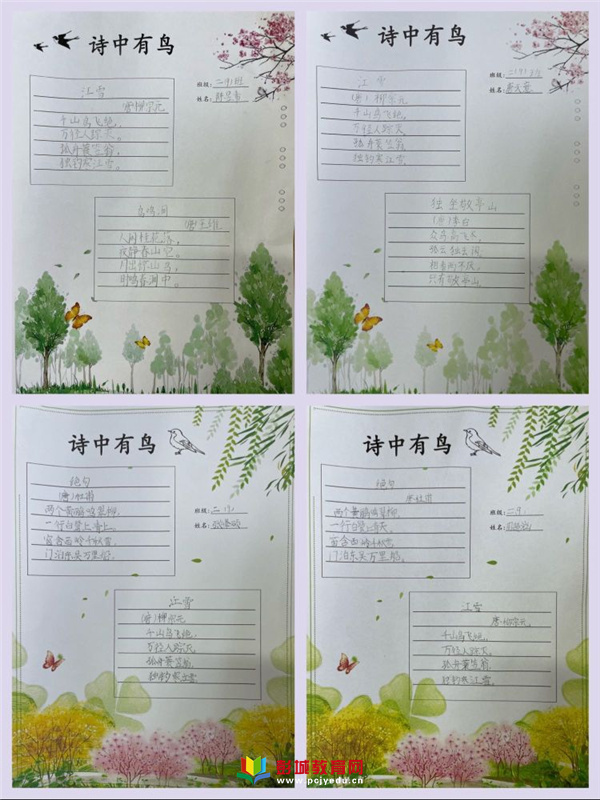 诗中有鸟
班级：二(9)班
姓名：
江雪
(唐)柳宗元
千山鸟飞绝，
万径人踪灭。
孤舟蓑笠翁，
独钓寒江雪。
鸟鸣涧
(唐)王维
人闲桂花落，
夜静春山空。
月出惊山鸟，
时鸣春涧中。
诗中有鸟
班级：二(9)班
姓名：
江雪
(唐)柳宗元
千山鸟飞绝，
万径人踪灭。
孤舟蓑笠翁，
独钓寒江雪。
独坐敬亭山
(唐)李白
众鸟高飞尽，
孤云独去闲。
相看两不厌，
只有敬亭山。
诗中有鸟
班级：
姓名：
绝句
(唐)杜甫
两个黄鹂鸣翠柳，
一行白鹭上青天。
窗含西岭千秋雪，
门泊东吴万里船。
江雪
(唐)柳宗元
千山鸟飞绝，
万径人踪灭。
孤舟蓑笠翁，
独钓寒江雪。
诗中有鸟
班级：二9
姓名：
绝句
杜甫
两个黄鹂鸣翠柳，
一行白鹭上青天。
窗含西岭千秋雪，
门泊东吴万里船。
江雪
唐·柳宗元
千山鸟飞绝，
万径人踪灭。
孤舟蓑笠翁，
独钓寒江雪。
彭城教育网
www.pcjyedu.cn